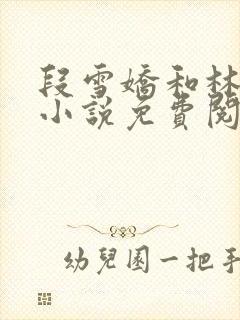 段雪嬌和林
小說免費閱
幼兒園一把手